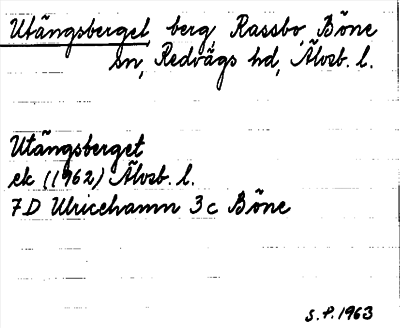 Utängsberget berg, Rassbo, Böne
sn, Redvägs hd, Älvsb. l.
Utängsberget
ek (1962) Älvsb. l.
7D Ulricehamn 3c Böne
S.P. 1963